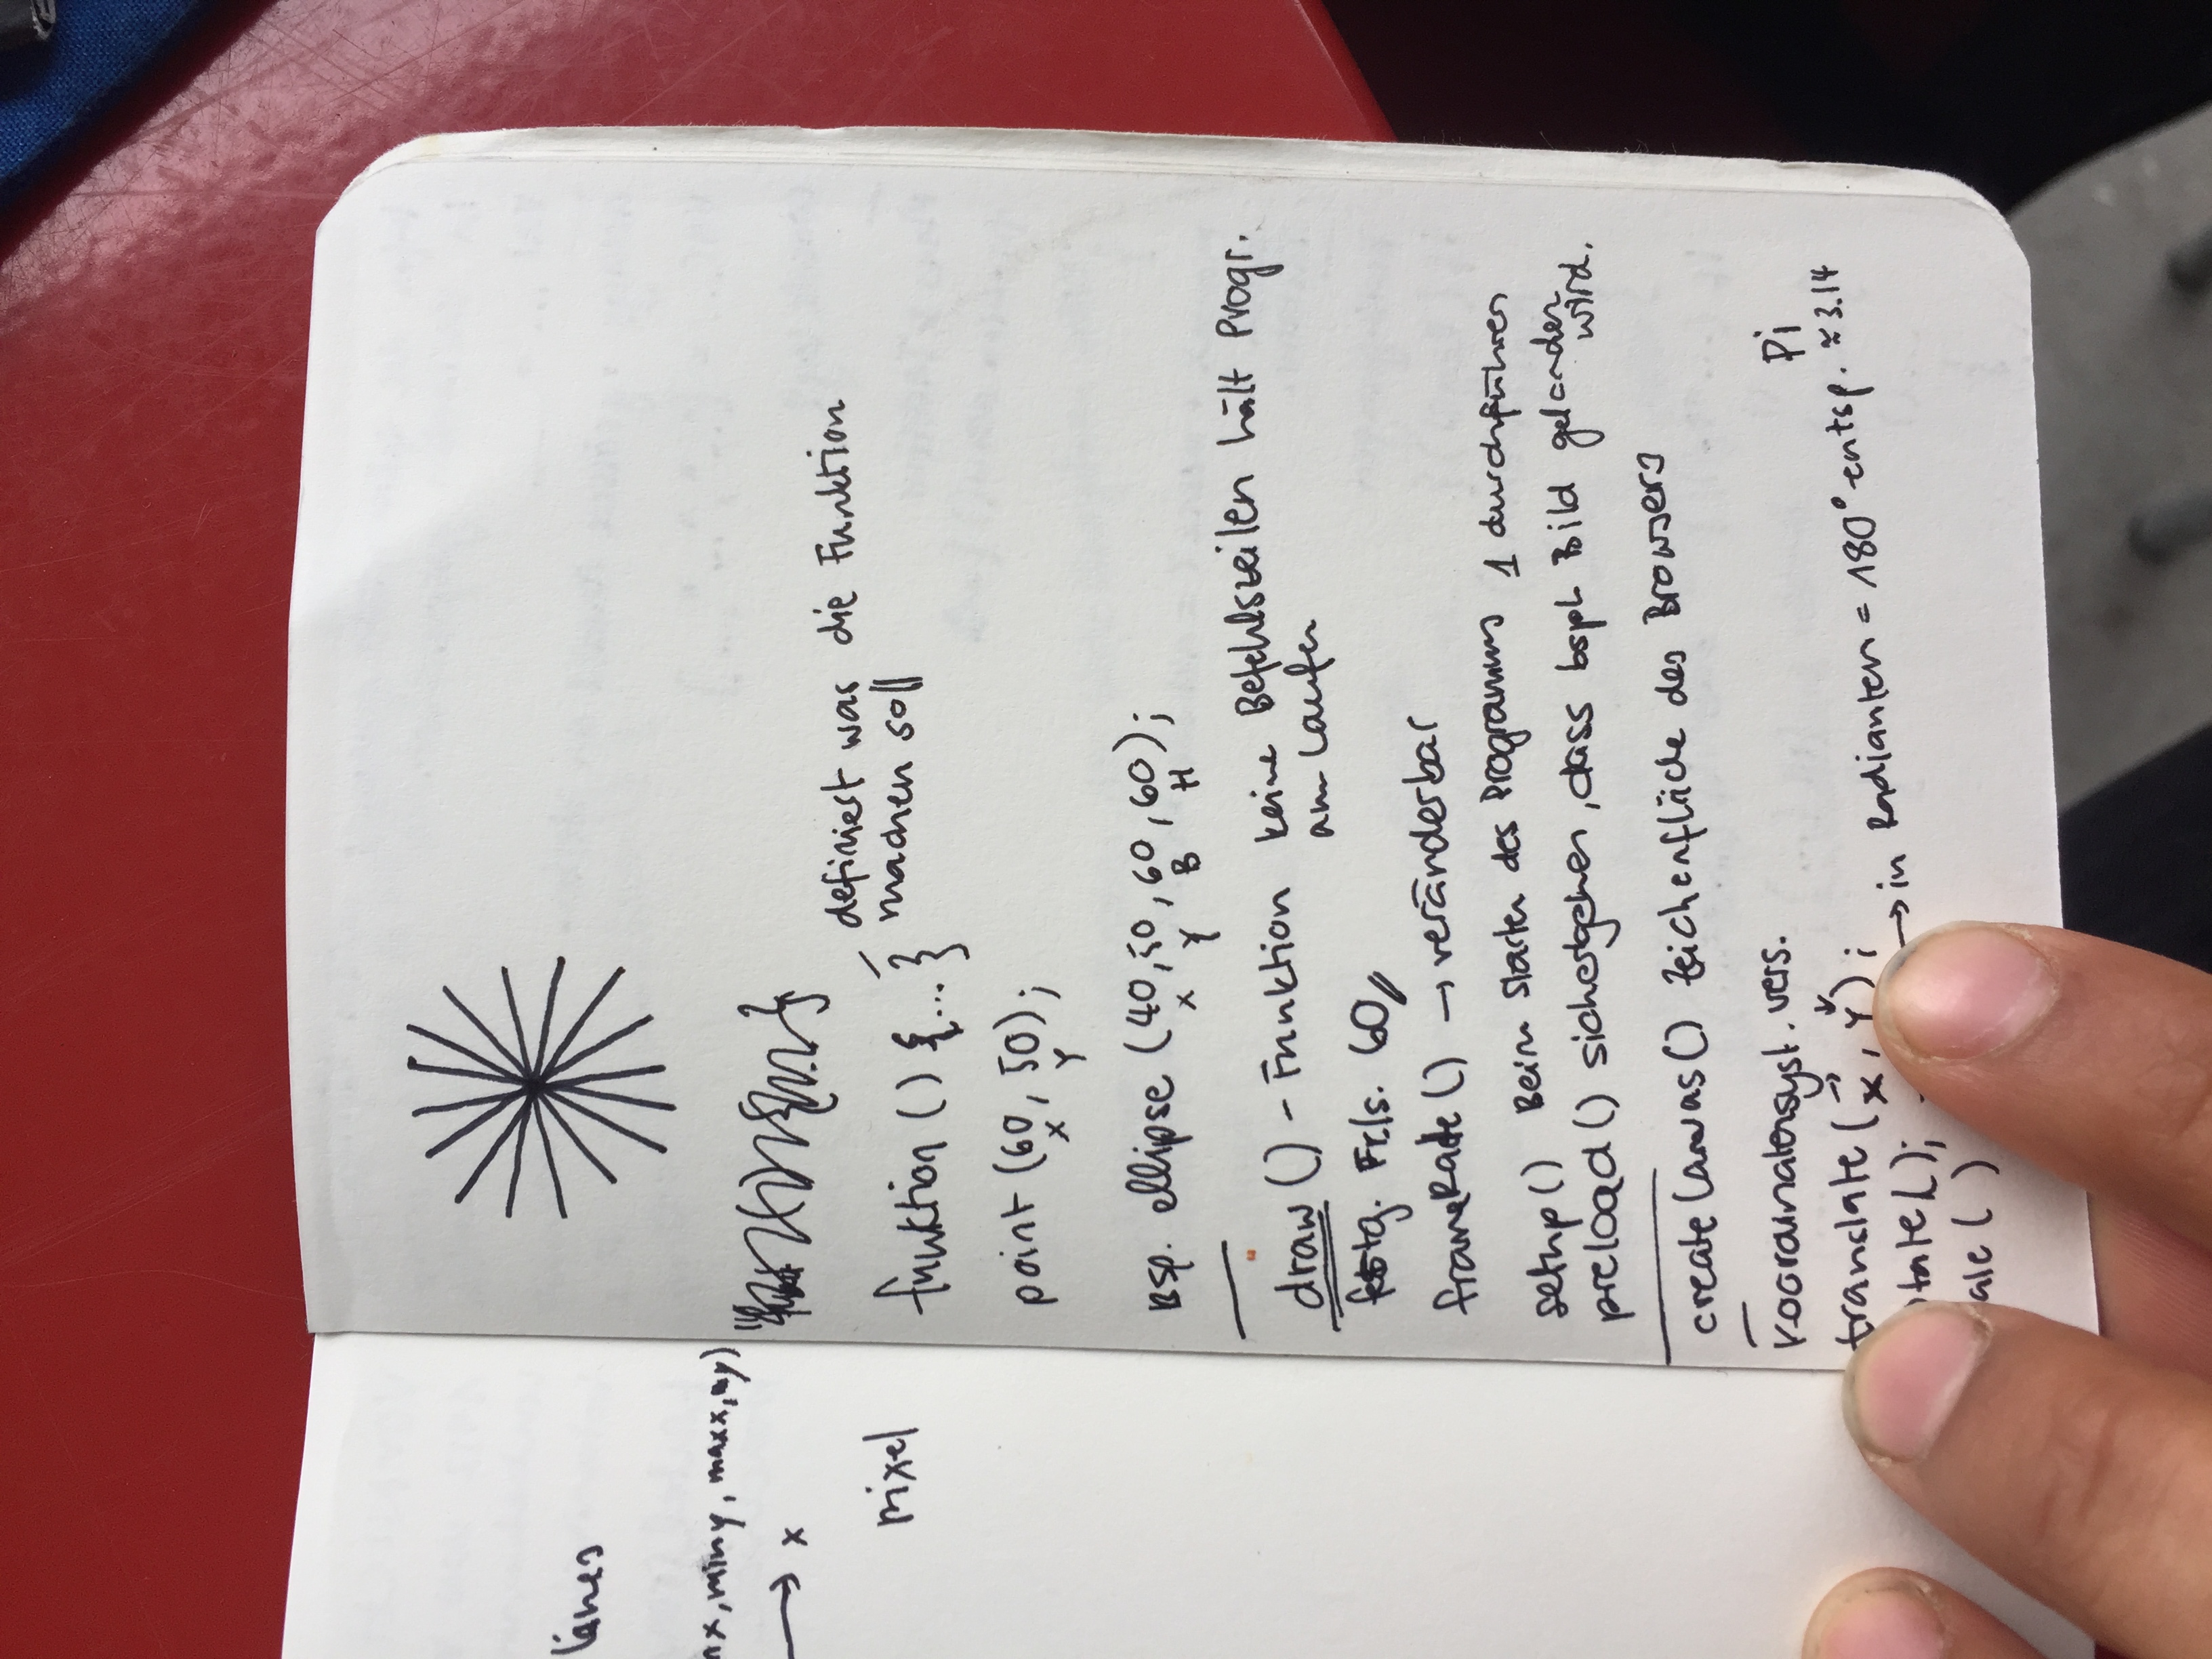 lines
nx, miny, maxx, my)
→ x
pixel
definiest was die Funktion
machen soll
funktion () {...}
point (60, 50);
x Y
Bsp. ellipse (40, 50, 60, 60);
x Y B H
draw () - Funktion keine Befehlszeilen hält Progr.
am Laufen
festg. Fr/s. 60
frameRate () → veränderbar
setup () Beim Starten des Programms 1 durchführen
preload () sichergehen, dass bspl. Bild geladen
wird.
createCanvas () Zeichenfläche des Browsers
Koordinatensyst. vers.
translate (x, y);
tate(); → in Radianten = 180° entsp. Pi
≈ 3.14
ale ()